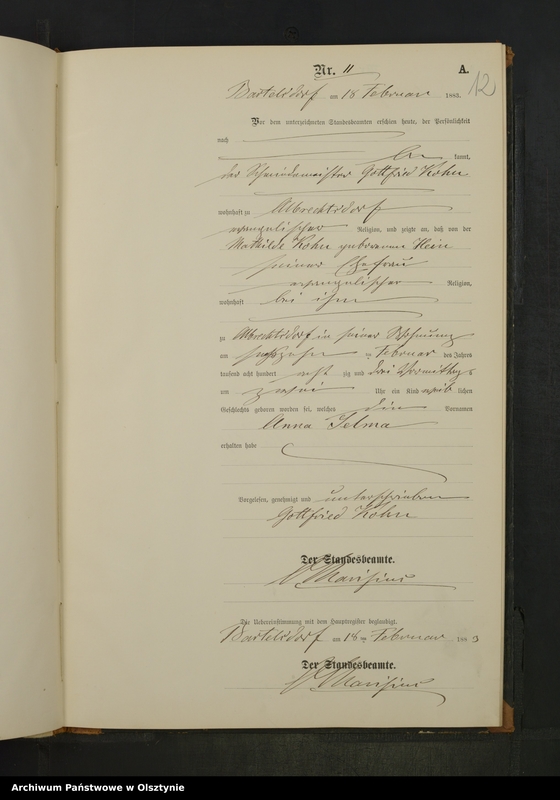 Nr. 11
A.
12
Bartelsdorf am 18 Februar 1883.
Vor dem unterzeichneten Standesbeamten erschien heute, der Persönlichkeit
nach
kannt,
der Schmiedemeister Gottfried Kohn
wohnhaft zu Albrechtsdorf
evangelischer Religion, und zeigte an, daß von der
Mathilde Kohn geborenen Hein
seiner Ehefrau
evangelischer Religion,
wohnhaft bei ihm
zu Albrechtsdorf in seiner Wohnung
am sechszehn ten Februar des Jahres
tausend acht hundert acht zig und drei Vormittags
um zwei Uhr ein Kind weib lichen
Geschlechts geboren worden sei, welches die Vornamen
Anna Selma
erhalten habe
Vorgelesen, genehmigt und unterschrieben
Gottfried Kohn
Der Standesbeamte.
Die Uebereinstimmung mit dem Hauptregister beglaubigt.
Bartelsdorf am 18 ten Februar 1883
Der Standesbeamte.
Archiwum Państwowe w Olsztynie